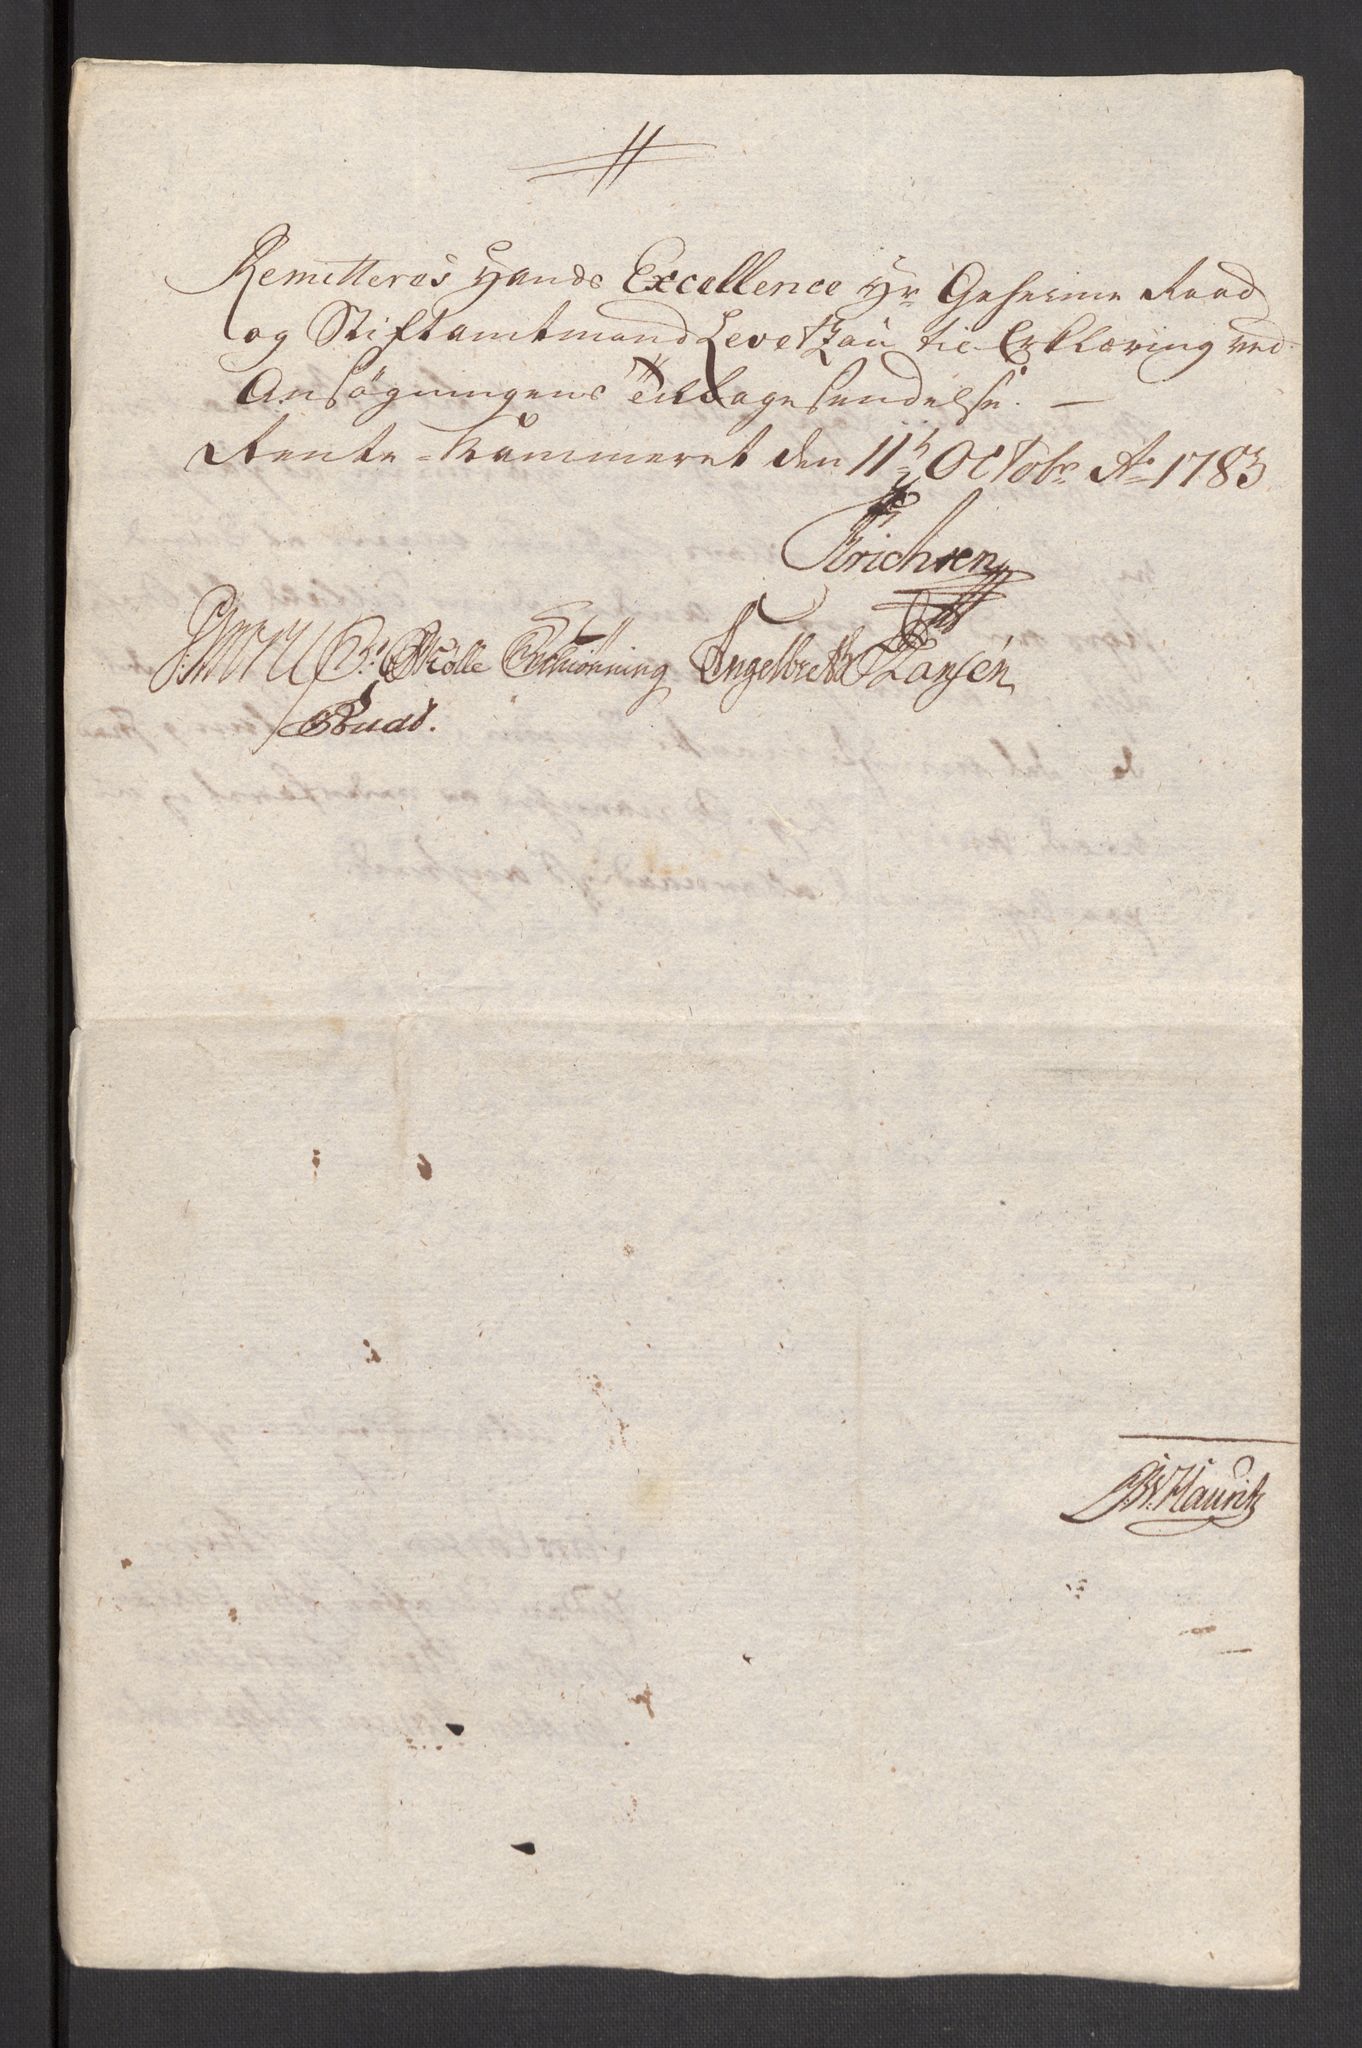 Remitteres Hands Excellence Hr Geheime Raad
og Stiftamtmand Levetzau til Erklæring ved
Ansøgningens tilbagesendelse. —
Rente-Kammeret den 11te Octobr Ao 1783
Erichsen
Müller Schiönning Engelbreth Hansen
Ruad.
Hauritz